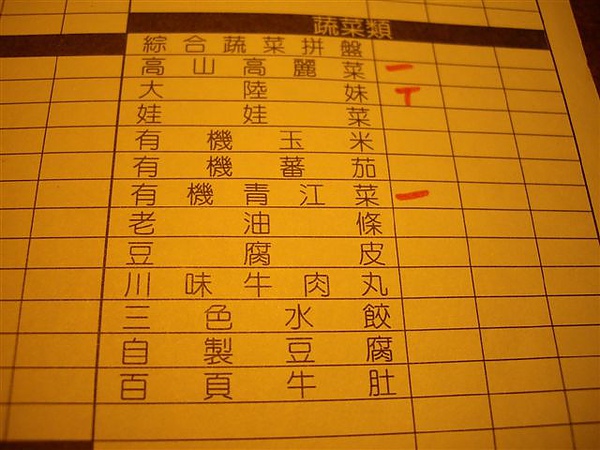 蔬菜類
綜合蔬菜拼盤
高山高麗菜 一
大陸妹 T
娃娃菜
有機玉米
有機蕃茄
有機青江菜 一
老油條
豆腐皮
川味牛肉丸
三色水餃
自製豆腐
百頁牛肚